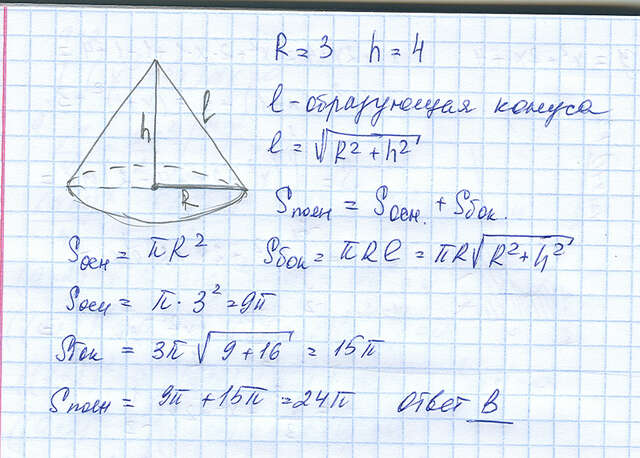 R = 3 h = 4
l - образующая конуса
l = √(R² + h²)
h
l
R
Sполн = Sосн. + Sбок.
Sосн = πR² Sбок = πRl = πR√(R² + h²)
Sосн = π · 3² = 9π
Sбок = 3π √(9 + 16) = 15π
Sполн = 9π + 15π = 24π ответ B